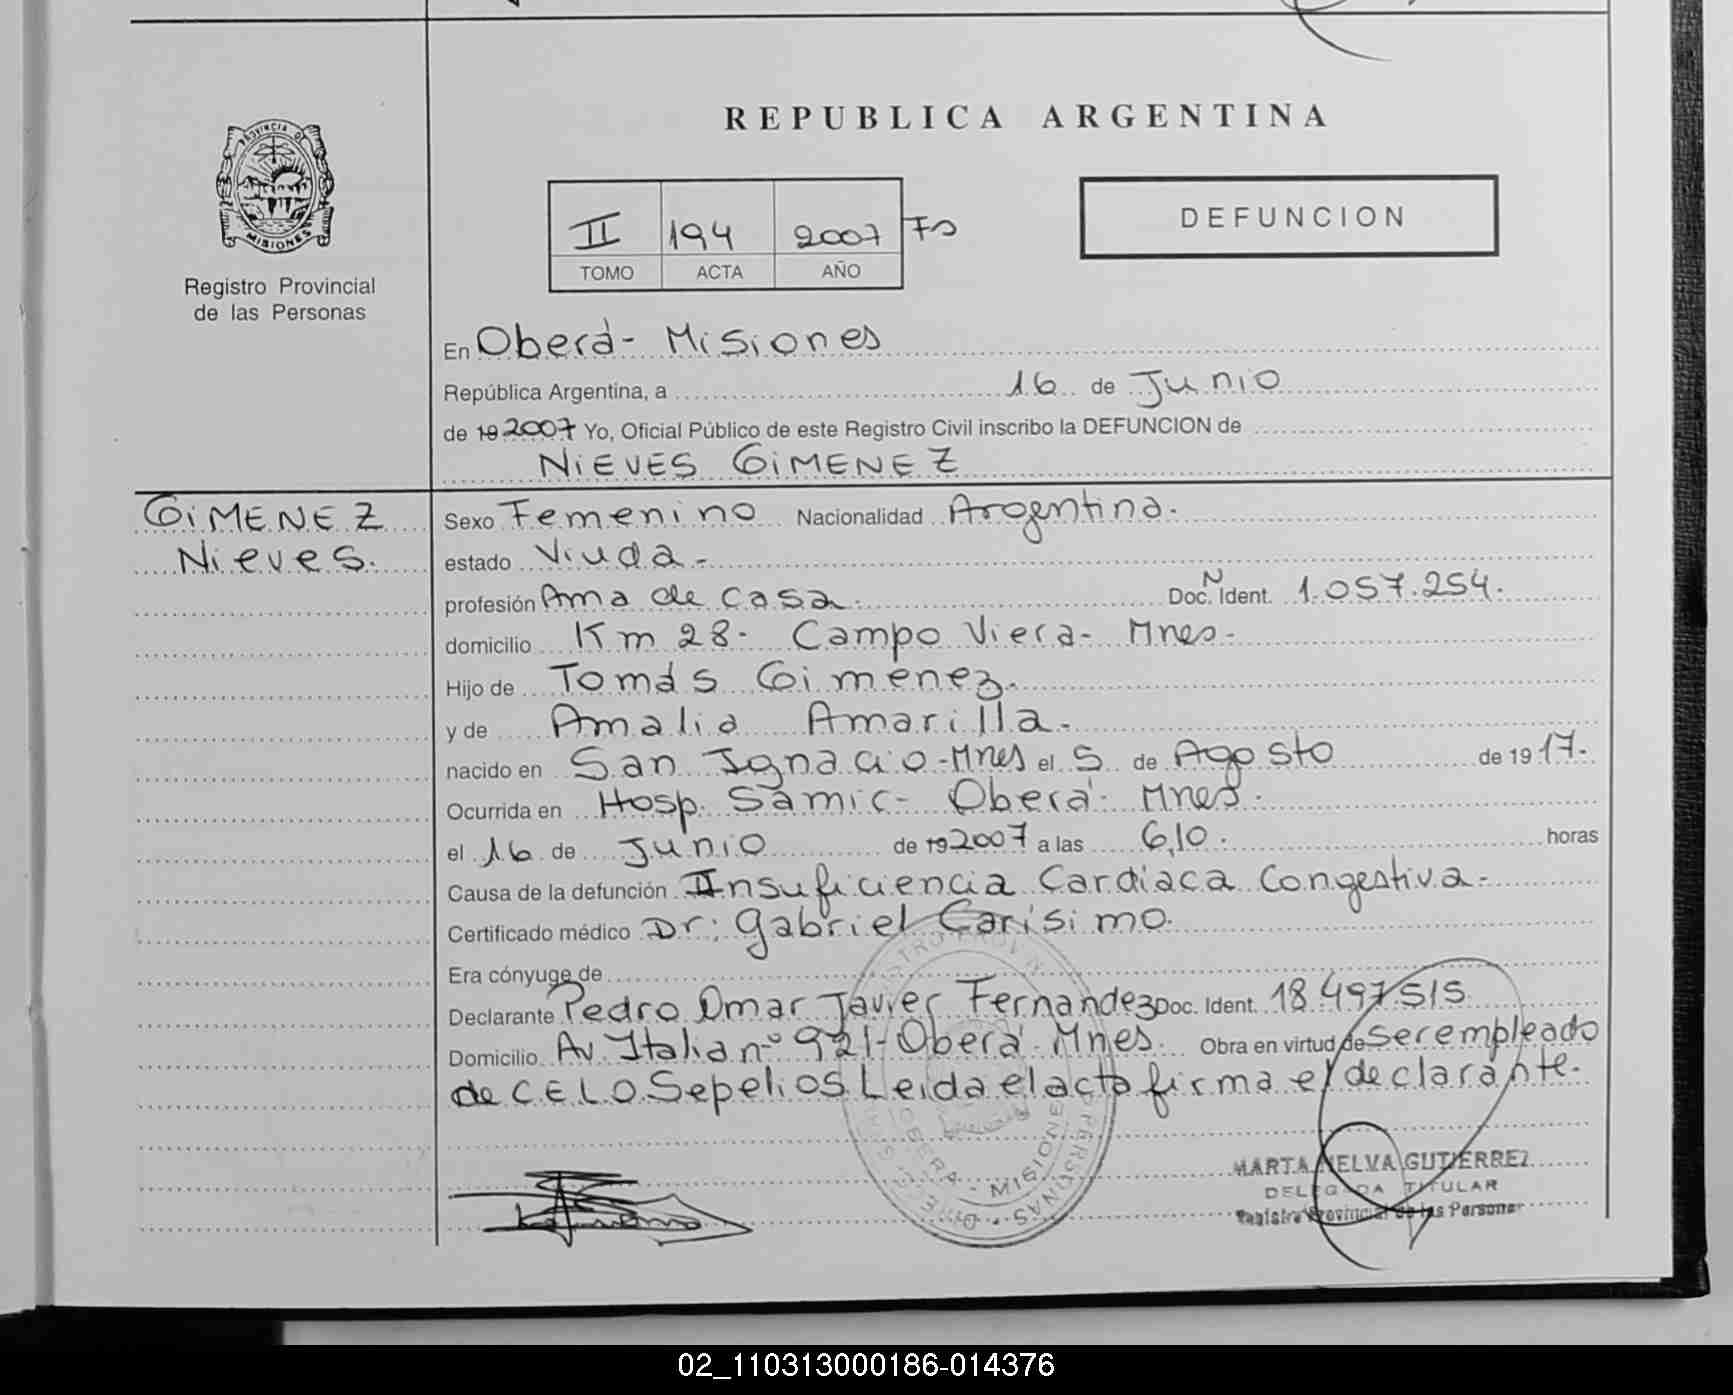 REPUBLICA ARGENTINA
PROVINCIA DE
MISIONES
Registro Provincial
de las Personas
II 194 2007
TOMO ACTA AÑO
DEFUNCION
En Oberá- Misiones
República Argentina, a 16 de Junio
de 19 2007 Yo, Oficial Público de este Registro Civil inscribo la DEFUNCION de
NIEVES GIMENEZ
GIMENEZ
Nieves.
Sexo Femenino Nacionalidad Argentina.
estado Viuda-
profesión Ama de casa. Doc. N Ident. 1.057.254.
domicilio Km 28- Campo Viera- Mnes-
Hijo de Tomás Gimenez.
y de Amalia Amarilla-
nacido en San Ignacio-Mnes el 5 de Agosto de 1917.
Ocurrida en Hosp. Samic- Oberá- Mnes.
el 16 de Junio de 19 2007 a las 6,10. horas
Causa de la defunción Insuficiencia Cardiaca Congestiva-
Certificado médico Dr: Gabriel Carísimo.
Era cónyuge de
Declarante Pedro Omar Javier Fernandez Doc. Ident. 18.497.515
Domicilio Av. Italia nº 921-Oberá- Mnes. Obra en virtud de ser empleado
de C.E.L.O. Sepelios. Leida el acta firma el declarante.
OBERA - MISIONES
MARTA NELVA GUTIERREZ
DELEGADA TITULAR
Registro Provincial de las Personas
02_110313000186-014376